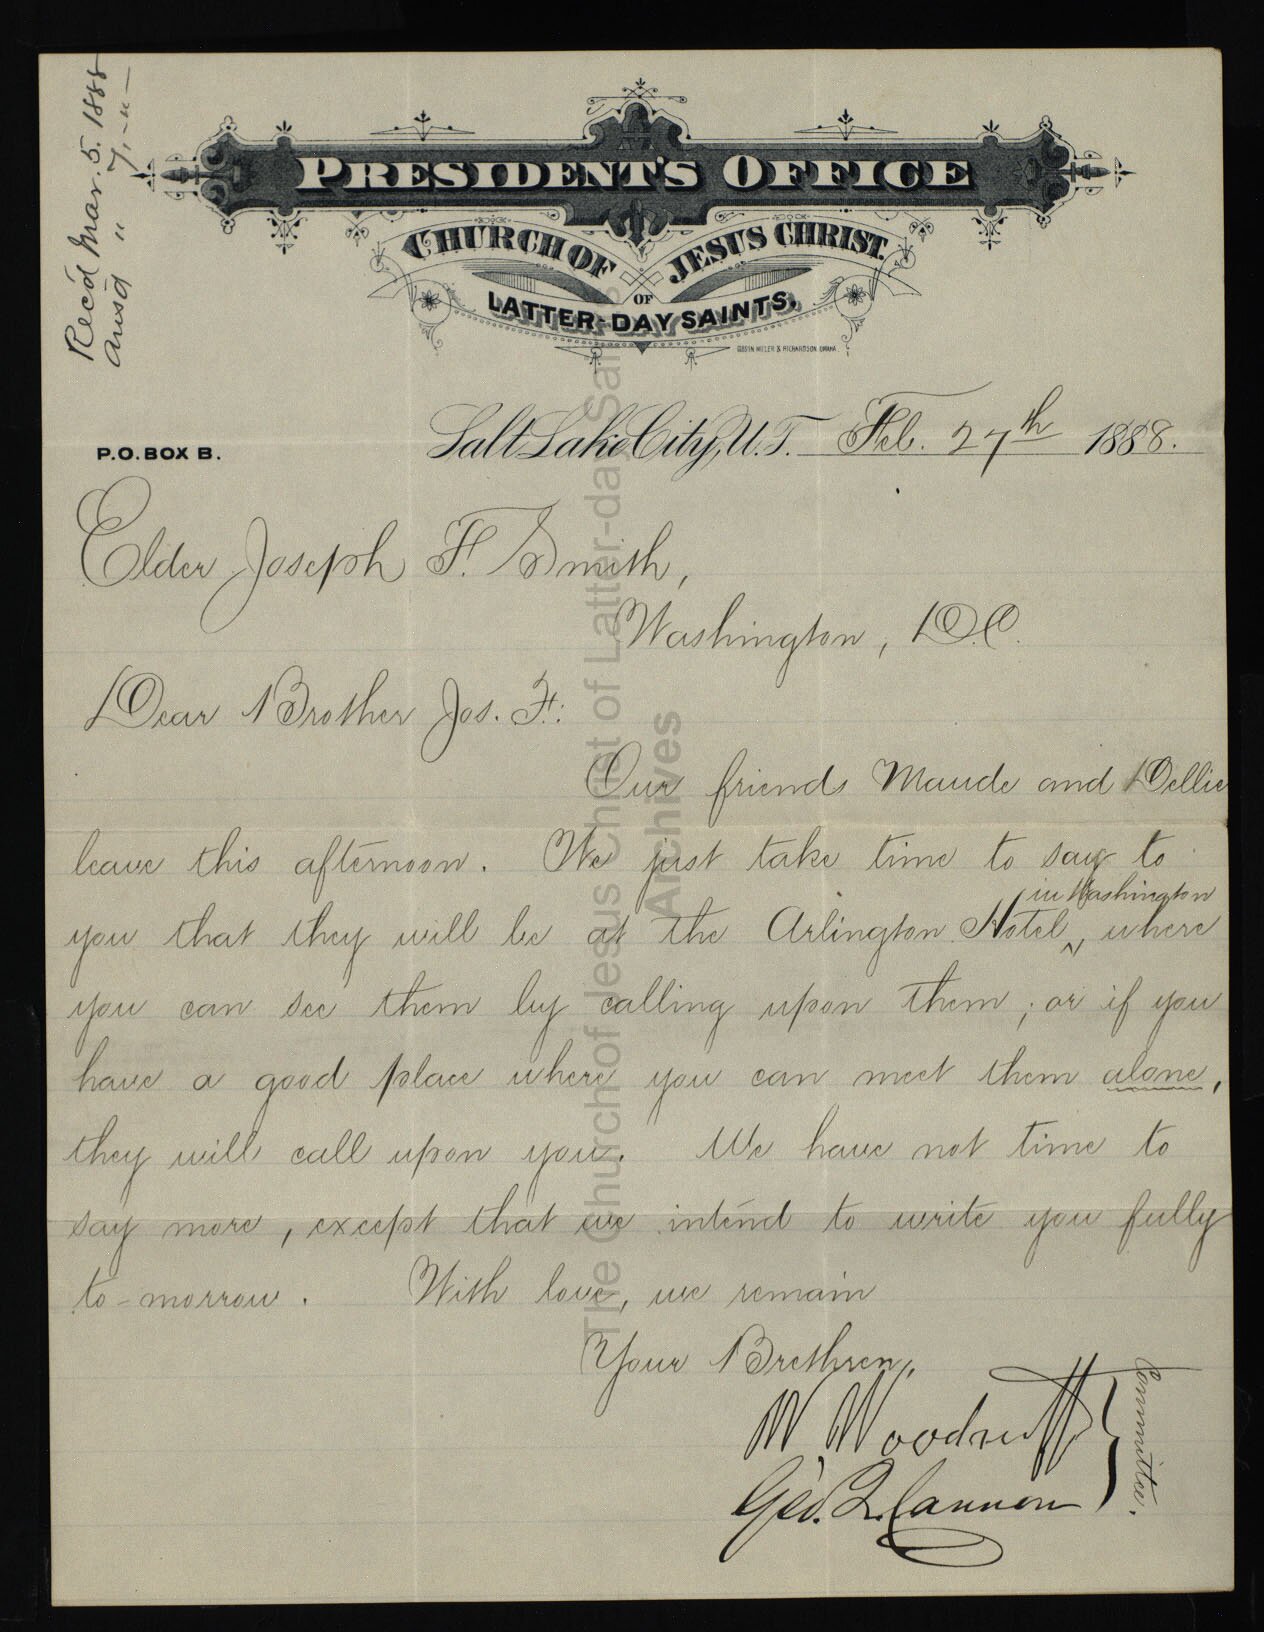 Recd Mar. 5. 1888
Ansd " 7, -"-
PRESIDENT'S OFFICE
CHURCH OF
JESUS CHRIST.
OF
LATTER-DAY SAINTS.
P.O. BOX B.
Salt Lake City, U.T. Feb. 27th 1888.
Elder Joseph F. Smith,
Washington, D.C.
Dear Brother Jos. F.:
Our friends Maude and Dellie
leave this afternoon. We just take time to say to
in Washington
you that they will be at the Arlington Hotel ^, where
you can see them by calling upon them; or if you
have a good place where you can meet them alone,
they will call upon you. We have not time to
say more, except that we intend to write you fully
to-morrow. With love, we remain
Your Brethren,
W Woodruff
Geo. Q. Cannon
Committee.
The Church of Jesus Christ of Latter-day Saints
Archives